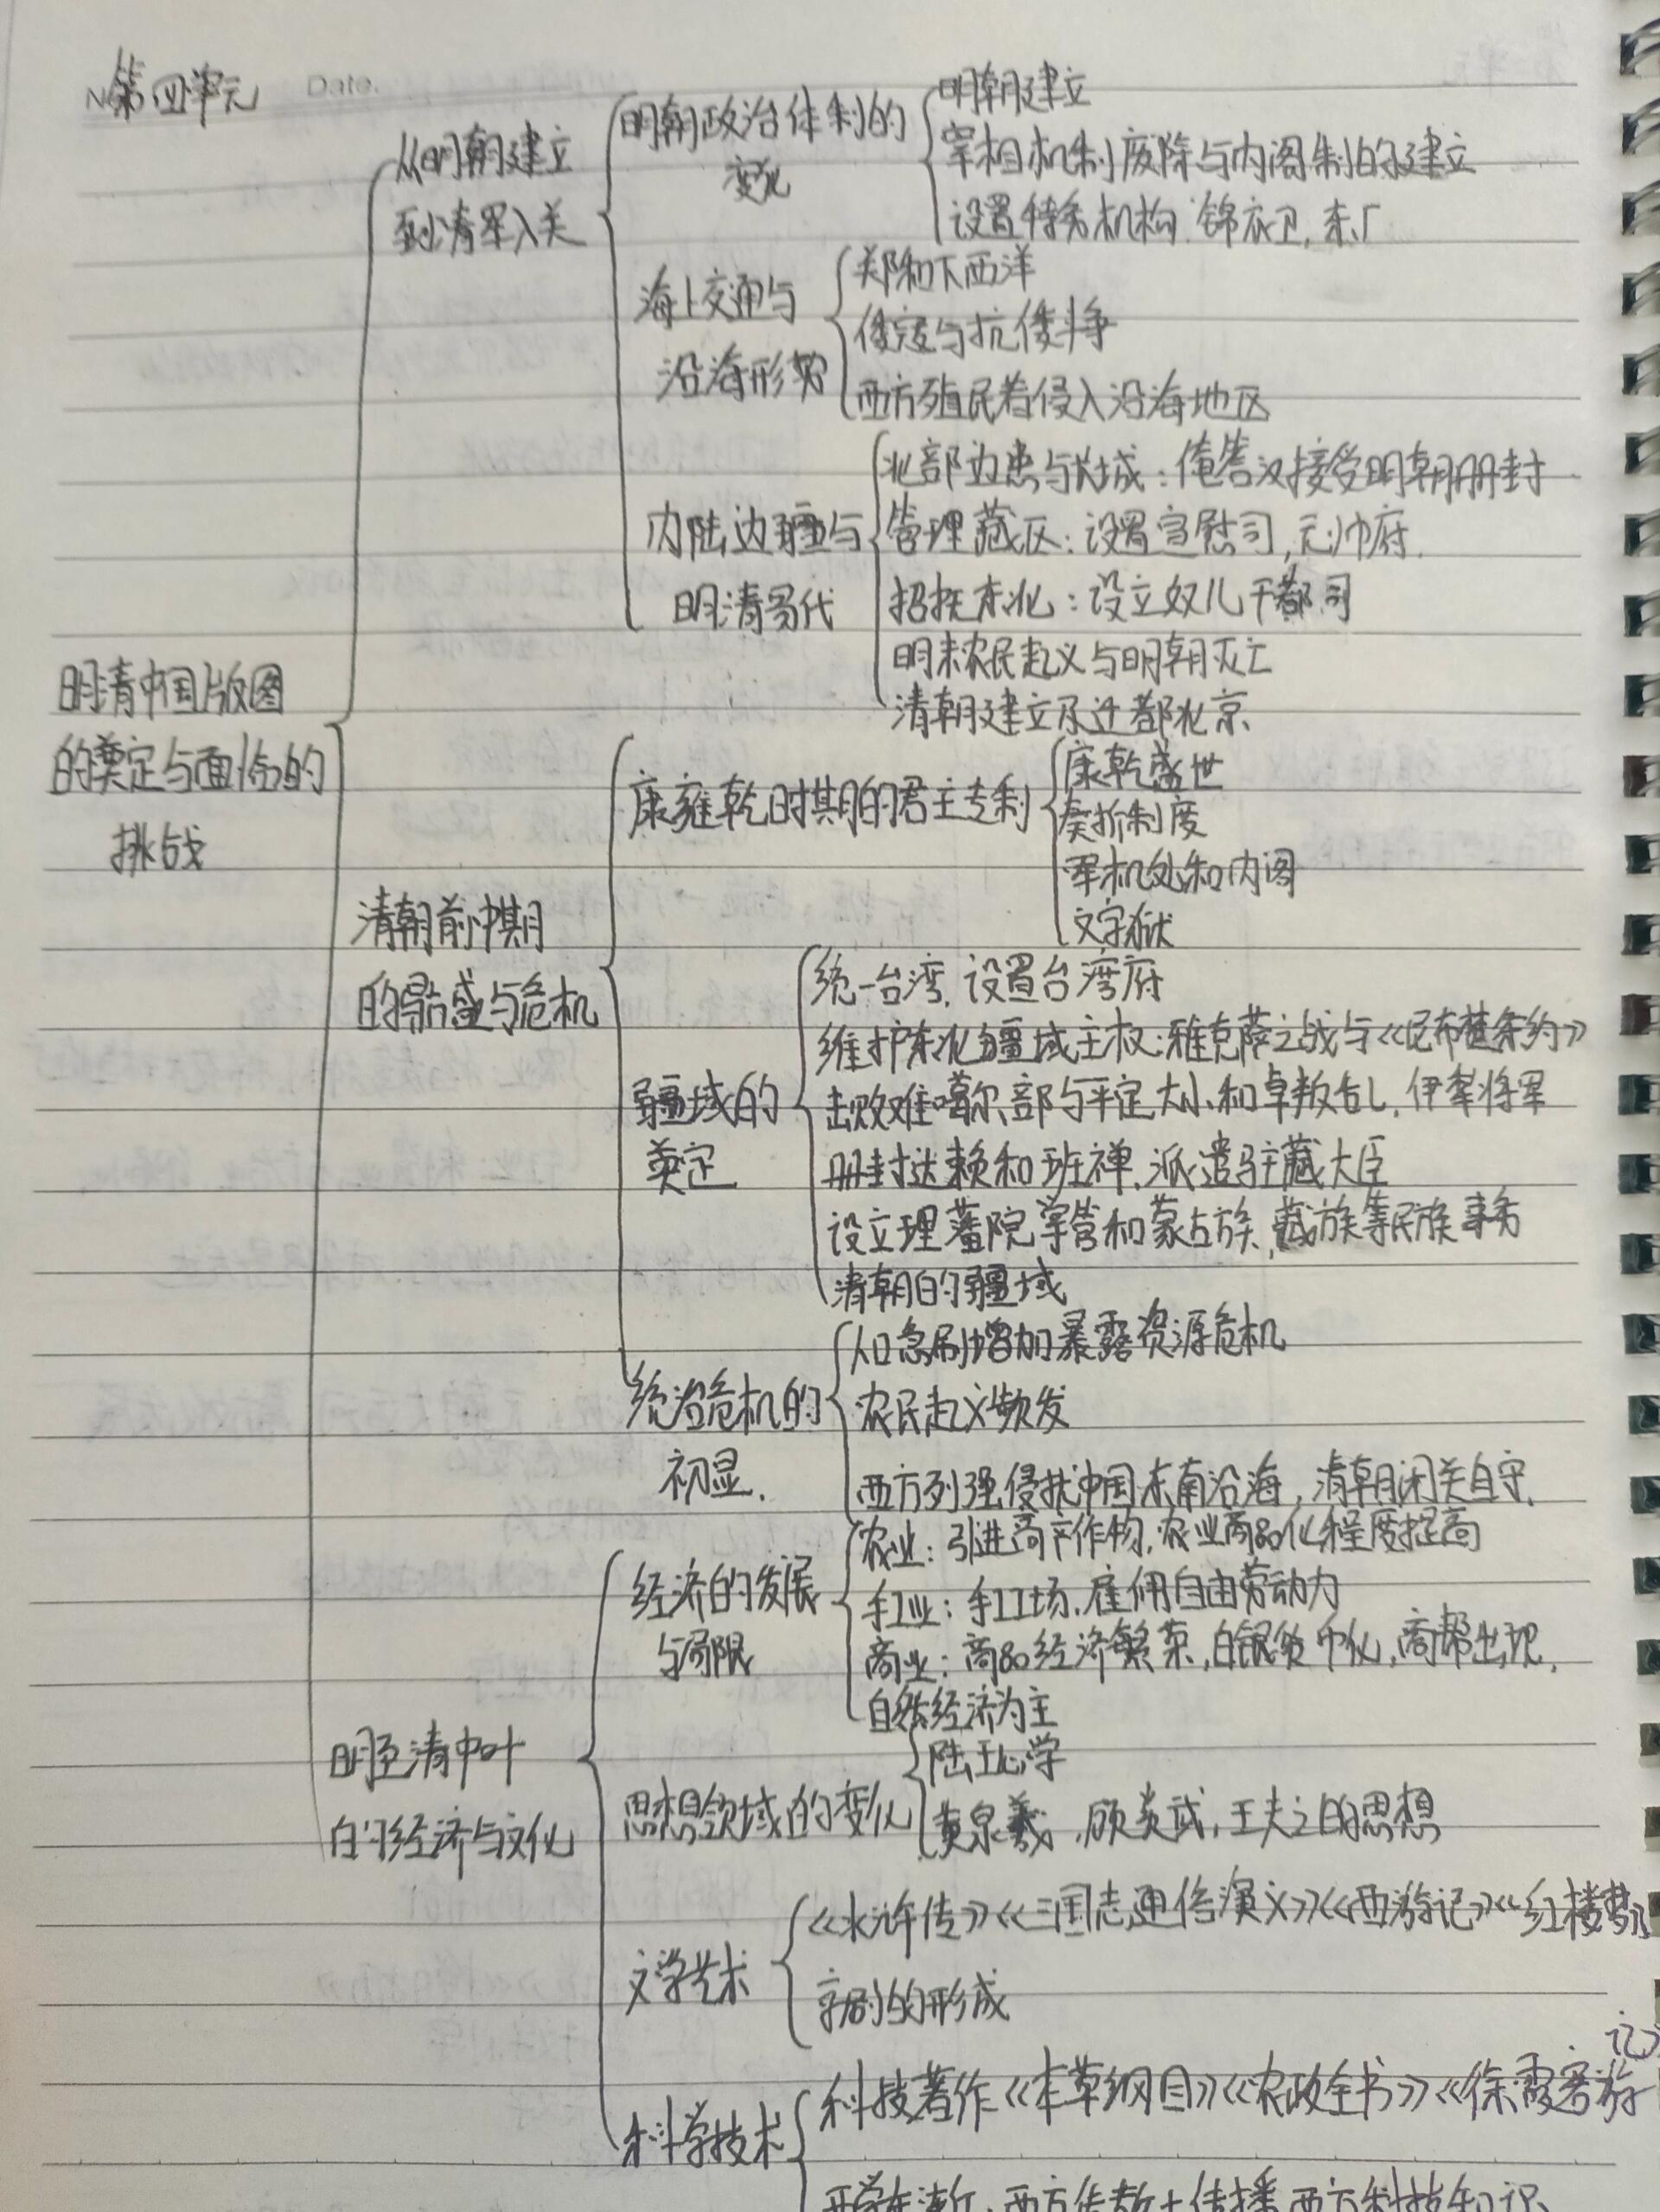 第四单元
Date.
从明朝建立
到清军入关
明朝政治体制的
变化
明朝建立
宰相机制废除与内阁制的建立
设置特务机构:锦衣卫,东厂
海上交通与
沿海形势
郑和下西洋
倭寇与抗倭斗争
西方殖民者侵入沿海地区
内陆边疆与
明清易代
北部边患与长城:俺答汉接受明朝册封
管理藏区:设置宣慰司,元帅府.
招抚东北:设立奴儿干都司
明末农民起义与明朝灭亡
清朝建立及迁都北京
明清中国版图
的奠定与面临的
挑战
清朝前中期
的鼎盛与危机
康雍乾时期的君主专制
康乾盛世
奏折制度
军机处和内阁
文字狱
疆域的
奠定
统一台湾,设置台湾府
维护东北疆域主权:雅克萨之战与《尼布楚条约》
击败难噶尔部与平定大小和卓叛乱,伊犁将军
册封达赖和班禅,派遣驻藏大臣
设立理藩院掌管和蒙古族,藏族等民族事务
清朝的疆域
统治危机的
初显.
人口急剧增加暴露资源危机
农民起义频发
西方列强侵扰中国东南沿海,清朝闭关自守.
明至清中叶
的经济与文化
经济的发展
与局限
农业:引进高产作物,农业商品化程度提高
手工业:手工工场,雇佣自由劳动力
商业:商品经济繁荣,白银货币化,商帮出现,
自然经济为主
思想领域的变化
陆王心学
黄宗羲,顾炎武,王夫之的思想
文学艺术
《水浒传》《三国志通俗演义》《西游记》《红楼梦》
京剧的形成
科学技术
科技著作《本草纲目》《农政全书》《徐霞客游
记》
西学东渐:西方传教士传播西方科技知识